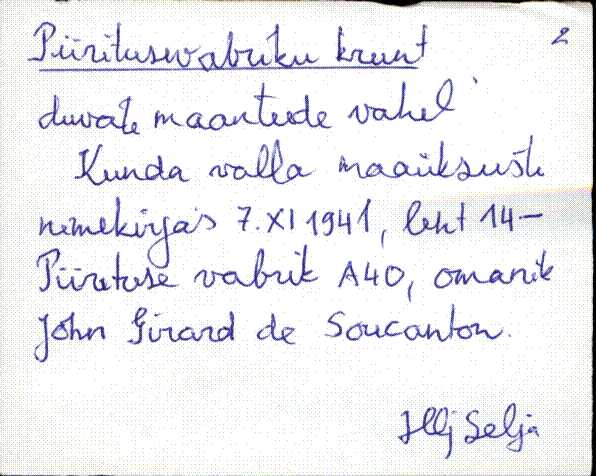 Piiritusevabriku krunt 2
duvate maanteede vahel
Kunda valla maaüksuste
nimekirjas 7.XI 1941, leht 14-
Piirituse vabrik A40, omanik
John Girard de Soucanton.
Selja